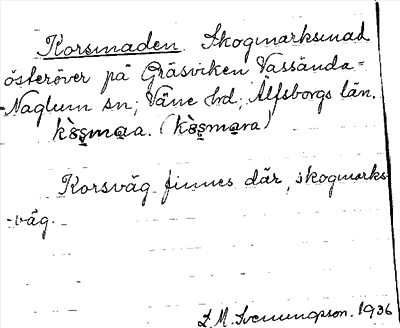 Korsmaden. Skogmarksmad
österöver på Gräsviken Vassända=
-Naglum sn; Väne hd; Älfsborgs län.
kòs̱maa. (kòs̱mara)
Korsväg finnes där, skogmarks
-väg.
L. M. Svenungsson. 1936